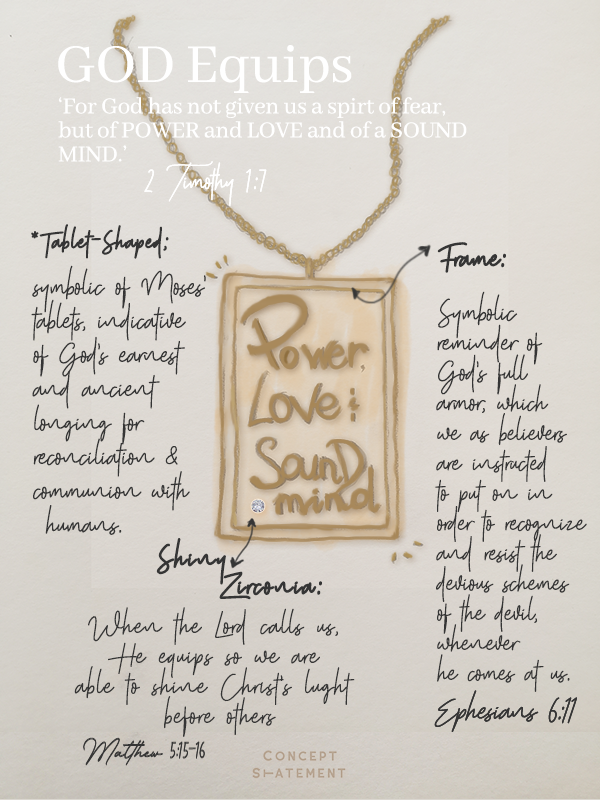 GOD Equips
‘For God has not given us a spirt of fear,
but of POWER and LOVE and of a SOUND
MIND.’
2 Timothy 1:7
*Tablet-Shaped:
symbolic of Moses'
tablets, indicative
of God's earnest
and ancient
longing for
reconciliation &
communion with
humans.
Frame:
Symbolic
reminder of
God's full
armor, which
we as believers
are instructed
to put on in
order to recognize
and resist the
devious schemes
of the devil,
whenever
he comes at us.
Ephesians 6:11
Power,
Love &
Sound
mind
Shiny
Zirconia:
When the Lord calls us,
He equips so we are
able to shine Christ's lught
before others
Matthew 5:15-16
CONCEPT
STATEMENT